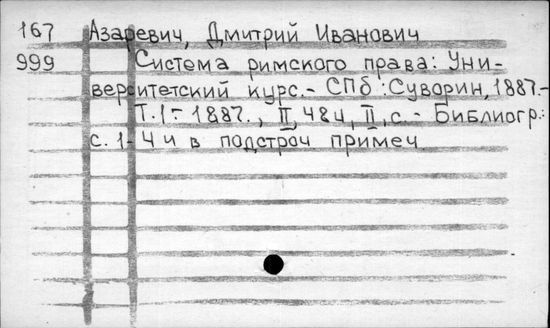 167 Азаревич, Дмитрий Иванович
999 Система римского права: Уни-
верситетский курс.- СПб: Суворин, 1887.-
Т. I - 1887., II, 484, II, с. - Библиогр.:
с. 1-4 и в подстроч примеч.